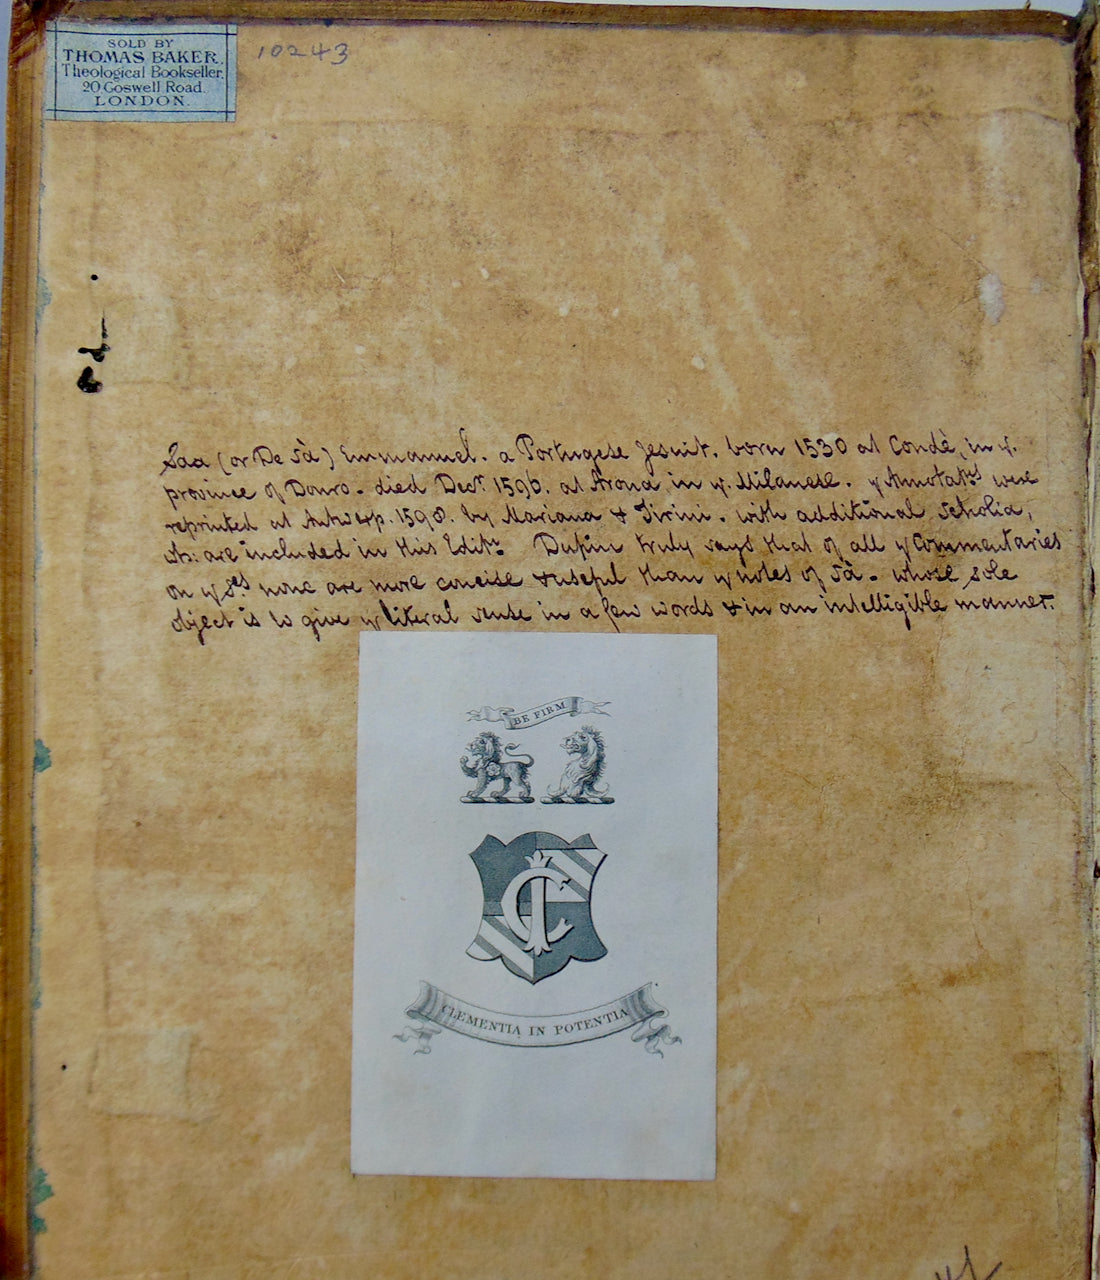 SOLD BY
THOMAS BAKER,
Theological Bookseller,
20 Goswell Road.
LONDON.
10243
Saa (or De Sà) Emmanuel. a Portugese Jesuit. born 1530 at Condè, in y.
province of Douro. died Decr. 1596. at Arona in y. Milanese. y Annotatns were
reprinted at Antwerp. 1598. by Mariana & Tirini. with additional scholia,
wh: are included in this Editn. Dupin truly says that of all y Commentaries
on y Ses none are more concise & useful than y notes of Sà. whose sole
object is to give y literal sense in a few words & in an intelligible manner.
BE FIRM
CLEMENTIA IN POTENTIA